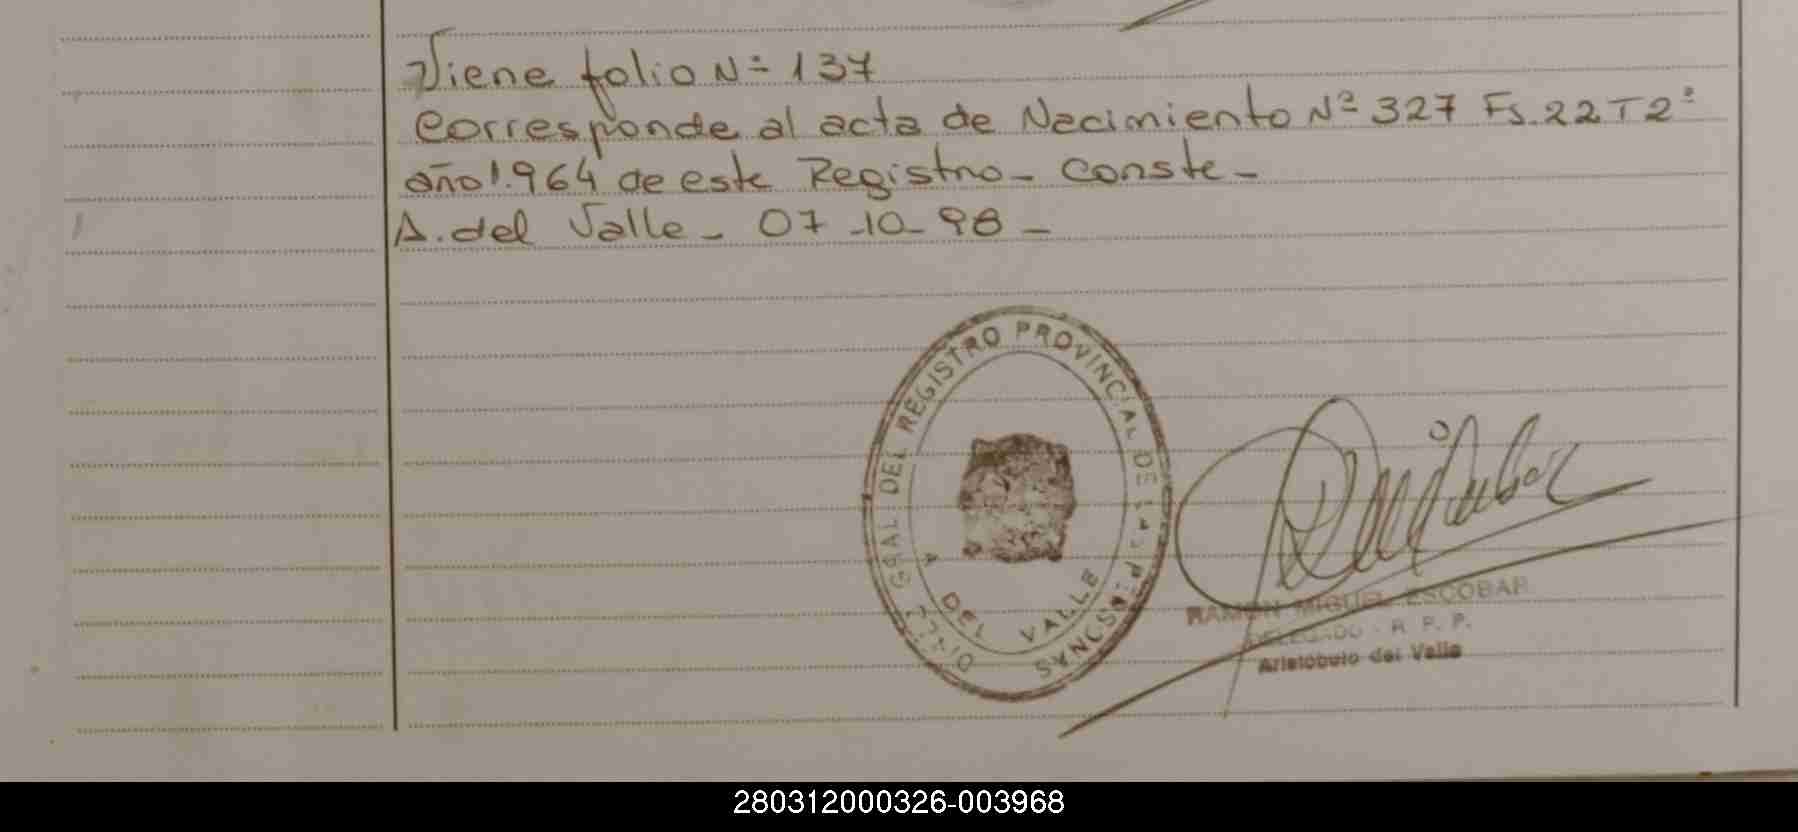 Viene folio Nº 137
Corresponde al acta de Nacimiento Nº 327 Fs. 22 T 2º
año 1.964 de este Registro - Conste -
A. del Valle - 07 -10- 98 -
DIRECC. GRAL. DEL REGISTRO PROVINCIAL DE LAS PERSONAS
A DEL VALLE
RAMON MIGUEL ESCOBAR
DELEGADO - R. P. P.
Aristóbulo del Valle
280312000326-003968